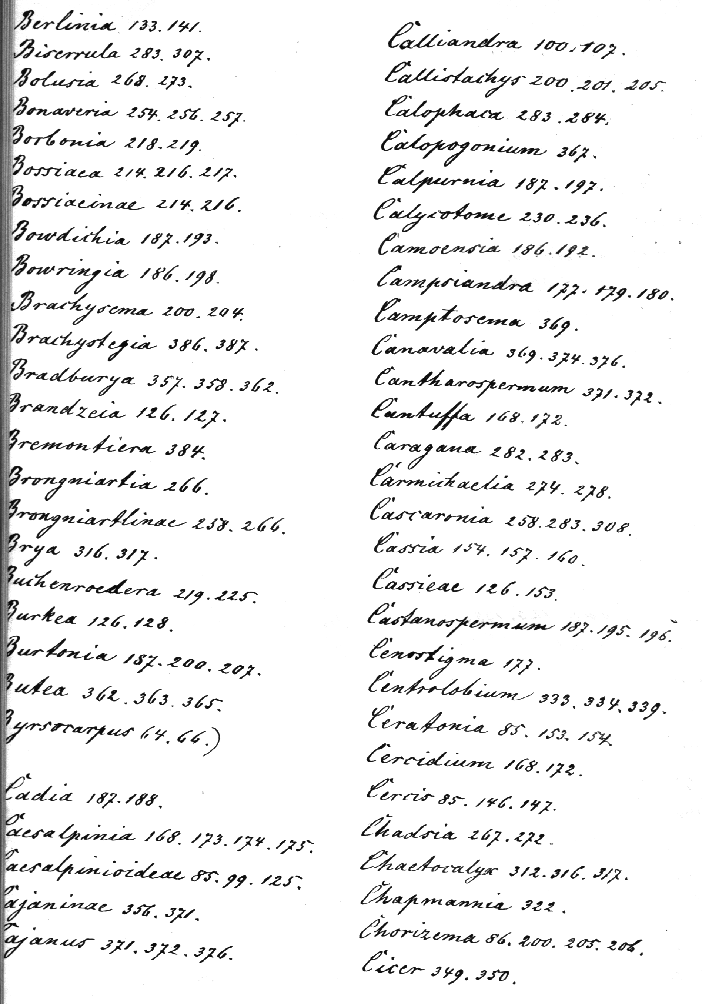 Berlinia 133. 141.
Biserrula 283. 307.
Bolusia 268. 273.
Bonaveria 254. 256. 257.
Borbonia 218. 219.
Bossiaea 214. 216. 217.
Bossiaeinae 214. 216.
Bowdichia 187. 193.
Bowringia 186. 198.
Brachysema 200. 204.
Brachystegia 386. 387.
Bradburya 357. 358. 362.
Brandzeia 126. 127.
Bremontiera 384.
Brongniartia 266.
Brongniartiinae 258. 266.
Brya 316. 317.
Buchenroedera 219. 225.
Burkea 126. 128.
Burtonia 187. 200. 207.
Butea 362. 363. 365.
Byrsocarpus 64. 66.)
Cadia 187. 188.
Caesalpinia 168. 173. 174. 175.
Caesalpinioideae 85. 99. 125.
Cajaninae 356. 371.
Cajanus 371. 372. 376.
Calliandra 100. 107.
Callistachys 200. 201. 205.
Calophaca 283. 284.
Calopogonium 367.
Calpurnia 187. 197.
Calycotome 230. 236.
Camoensia 186. 192.
Campsiandra 177. 179. 180.
Camptosema 369.
Canavalia 369. 374. 376.
Cantharospermum 371. 372.
Cantuffa 168. 172.
Caragana 282. 283.
Carmichaelia 274. 278.
Cascaronia 258. 283. 308.
Cassia 154. 157. 160.
Cassieae 126. 153.
Castanospermum 187. 195. 196.
Cenostigma 177.
Centrolobium 333. 334. 339.
Ceratonia 85. 153. 154.
Cercidium 168. 172.
Cercis 85. 146. 147.
Chadsia 267. 272.
Chaetocalyx 312. 316. 317.
Chapmannia 322.
Chorizema 86. 200. 205. 206.
Cicer 349. 350.